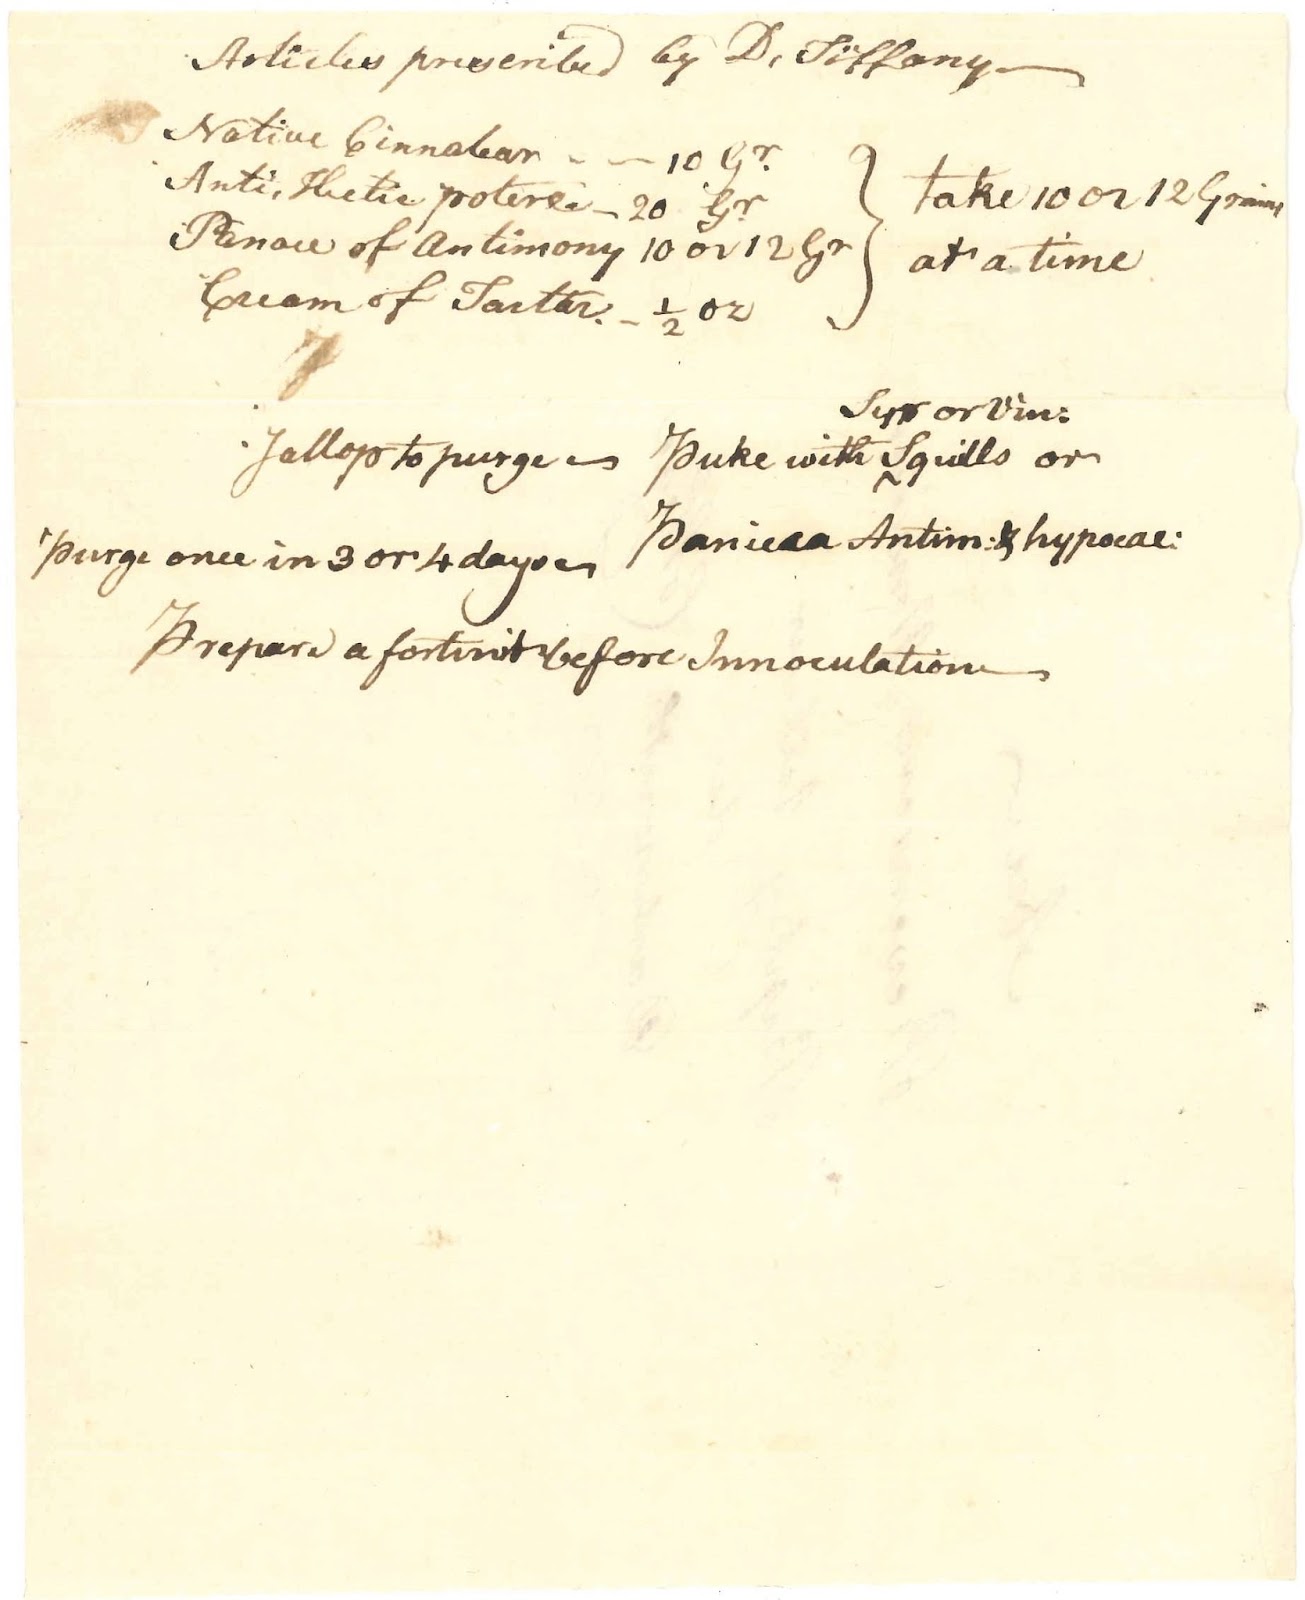 Articles prescribed by D, Tiffany
Native Cinnabar - - 10 Gr.
Anti, Hectic poterie - 20 Gr
Panace of Antimony 10 or 12 Gr
Cream of Tartar. - 1/2 oz
take 10 or 12 Grains
at a time
Jallop to purge
Syr or Vin:
Puke with ^ Squills or
Purge once in 3 or 4 days
Panicea Antim: & hypocac:
Prepare a fortnit before Innoculation